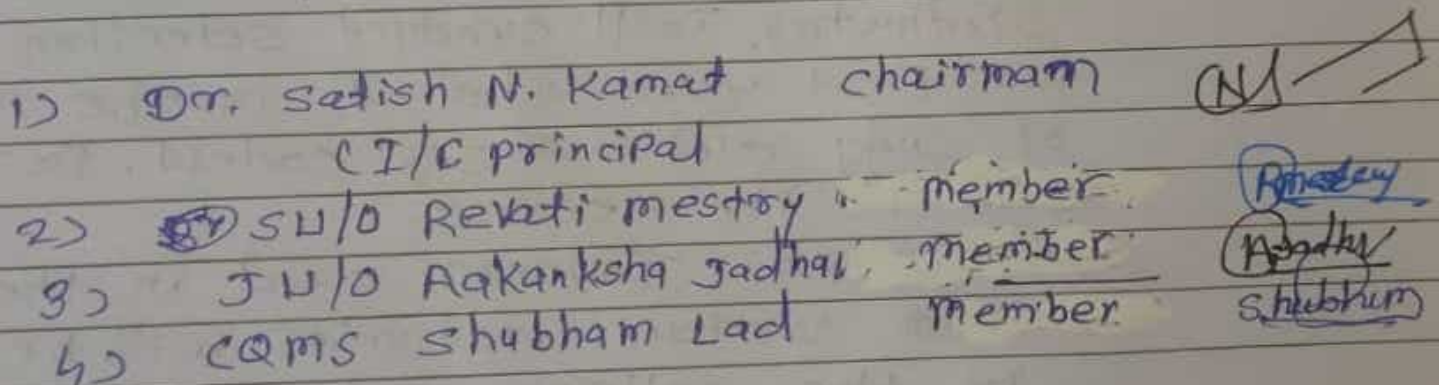 1) Dr. Satish N. Kamat chairmam
(I/C principal
2) SU/O Revati mestry member Rmestry
3) JU/O Aakanksha Jadhav member AJadhv
4) CQMS Shubham Lad member Shubhum